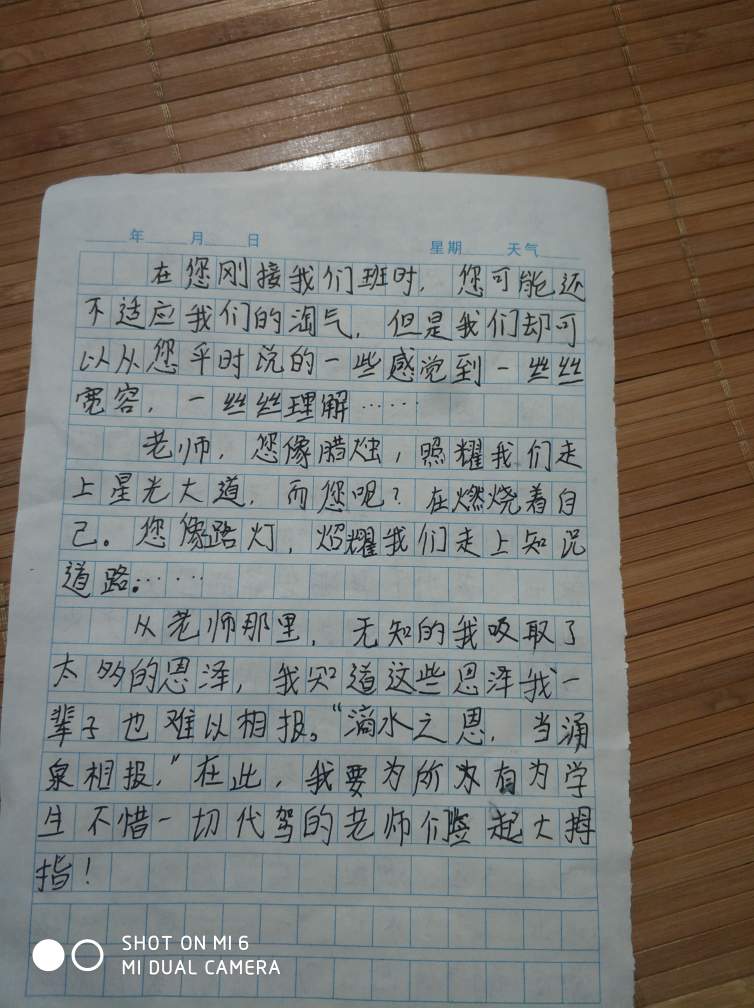 年 月 日 星期 天气
在您刚接我们班时，您可能还
不适应我们的淘气，但是我们却可
以从您平时说的一些感觉到一丝丝
宽容，一丝丝理解……
老师，您像腊烛，照耀我们走
上星光大道，而您呢？在燃烧着自
己。您像路灯，照耀我们走上知识
道路。……
从老师那里，无知的我吸取了
太多的恩泽，我知道这些恩泽我一
辈子也难以相报。“滴水之恩，当涌
泉相报，”在此，我要为所有为学
生不惜一切代驾的老师们竖起大拇
指！
SHOT ON MI 6
MI DUAL CAMERA